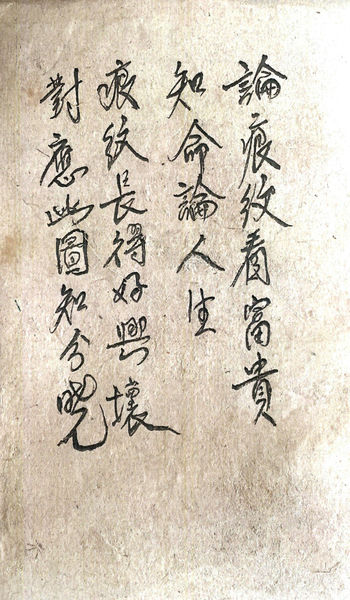 論痕紋看富貴
知命論人生
痕紋長得好與壞
對應此圖知分曉